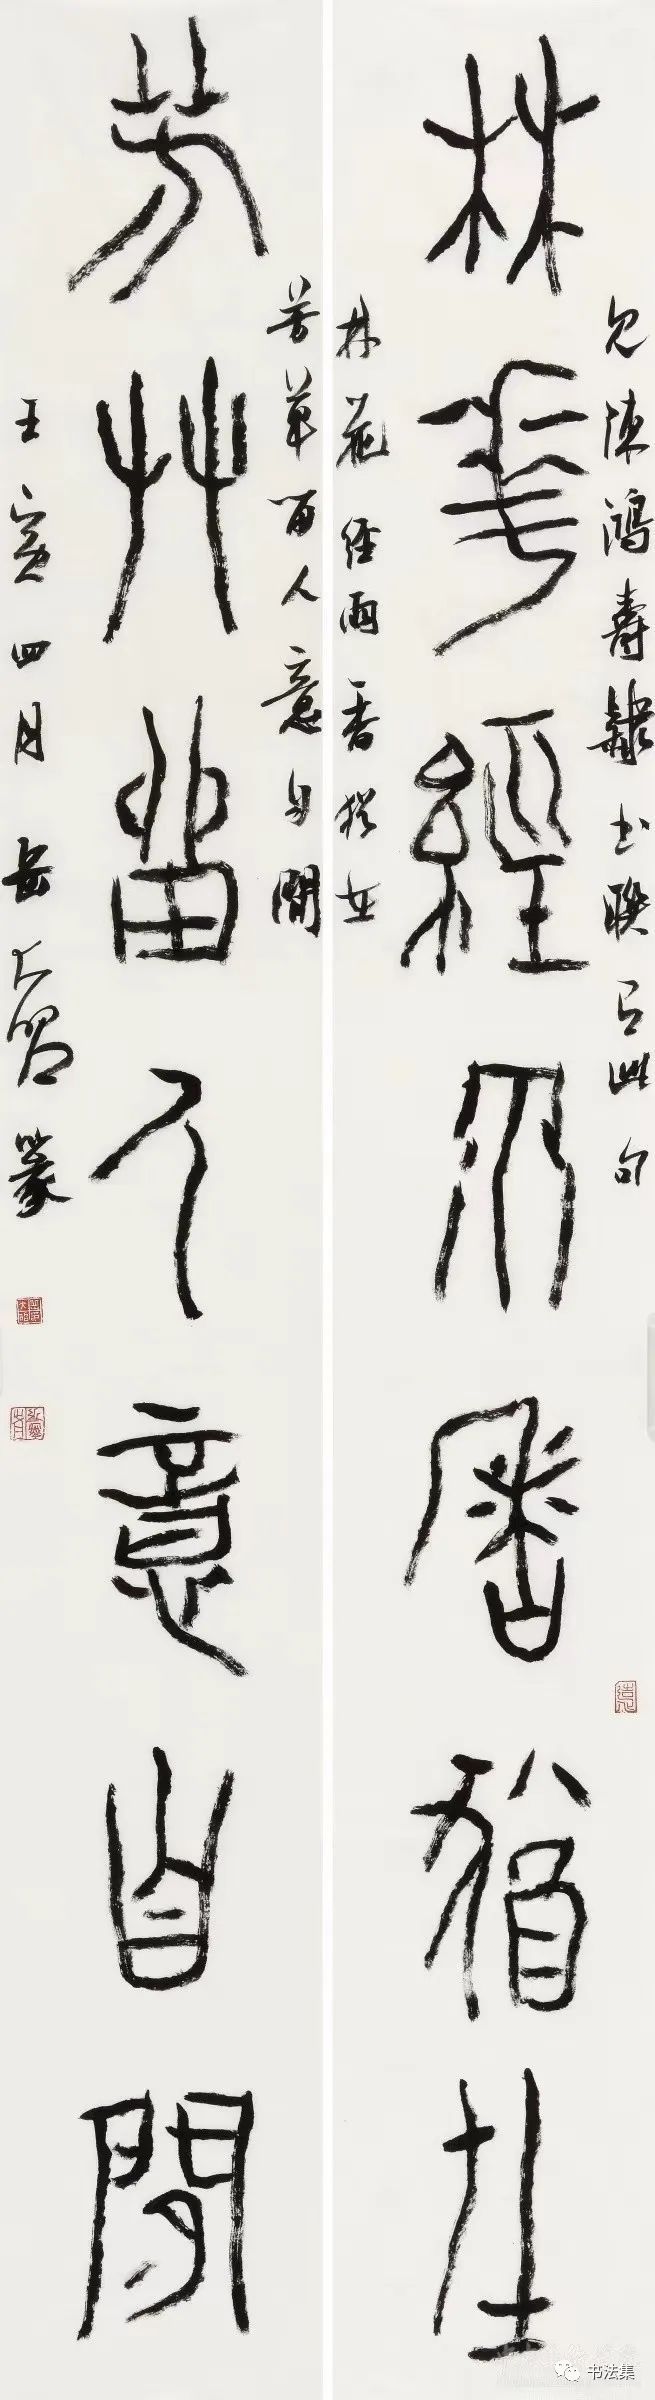 見陳鴻壽隸書聯有此句
林花經雨香猶在
林花經雨香猶在
芳草留人意自閒
芳草留人意自閒
壬寅四月岳大篆
书法集